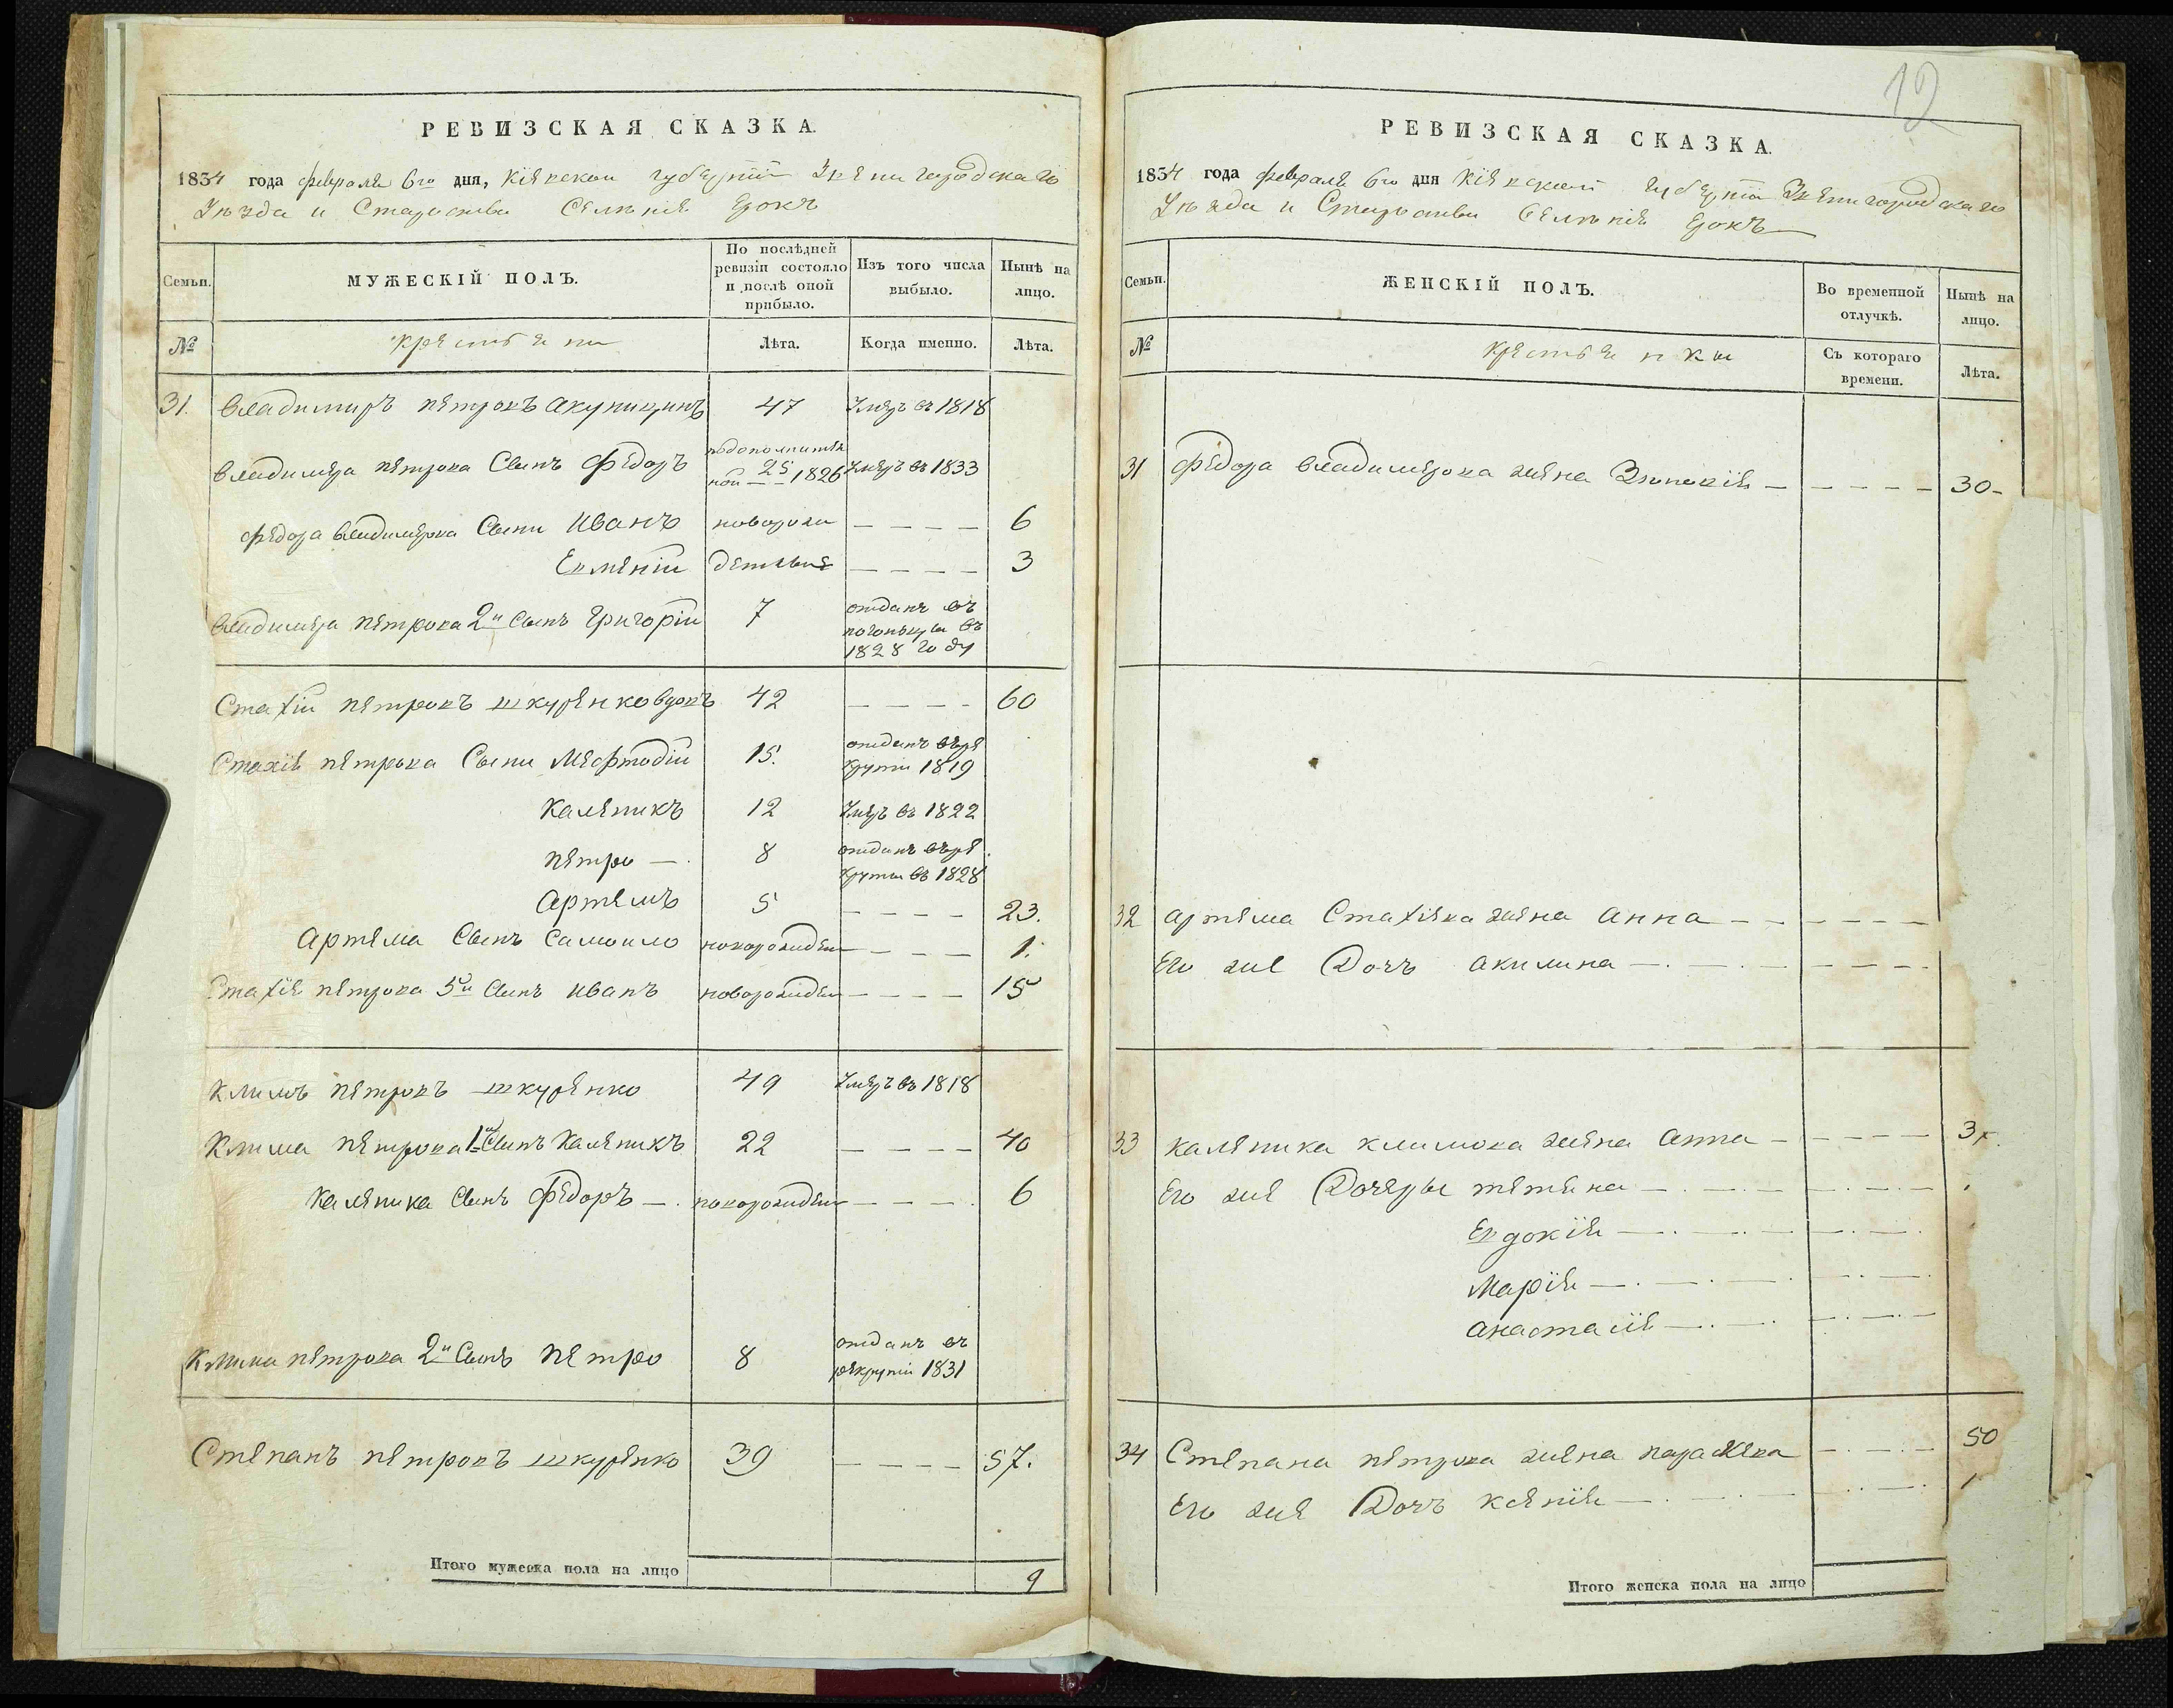 12
РЕВИЗСКАЯ СКАЗКА.
1834 года февраля 6го дня, Кіевской губерніи Звенигородскаго
Уѣзда и Староства Селенія
МУЖЕСКІЙ ПОЛЪ.
Семьи.
По послѣдней ревизіи состояло и послѣ оной прибыло.
Изъ того числа выбыло.
Нынѣ на лицо.
№
крестьяни
Лѣта.
Когда именно.
Лѣта.
31. Владимиръ Петровъ 47 Умеръ въ 1818
Владимера Петрова Сынъ Федоръ 25 1826 Умеръ въ 1833
Федора Владимерова Сыни Иванъ новорож 6
Евменій денные 3
Владимера Петрова 2й Сынъ Григорій 7 отданъ въ
въ
1828 году
Стахій Петровъ Шкуренко вдовъ 42 60
Стахія Петрова Сыни Мефтодій 15. отданъ въ ре
круты 1819
Каленикъ 12 Умеръ въ 1822
Петро 8 отданъ въ ре
круты въ 1828
Артемъ 5 23.
Артема Сынъ Самоило новорожден 1.
Стахія Петрова 5й Сынъ Иванъ новорожден 15
Климъ Петровъ Шкуренко 49 Умеръ въ 1818
Клима Петрова 1й Сынъ Каленикъ 22 40
Каленика Сынъ Федоръ новорожден 6
Клима Петрова 2й Сынъ Петро 8 отданъ въ
рекруты 1831
Степанъ Петровъ Шкуренко 39 57.
Итого мужеска пола на лицо 9
РЕВИЗСКАЯ СКАЗКА.
1834 года февраля 6го дня Кіевской губерніи Звенигородскаго
Уѣзда и Староства Селенія
Семьи.
ЖЕНСКІЙ ПОЛЪ.
Во временной отлучкѣ.
Нынѣ на лицо.
№
крестьянки
Съ котораго времени.
Лѣта.
31 Федора Владимерова жена Зиновія 30
32 Артема Стахіева жена Анна
Его же Дочъ Акилина
33 Каленика Климова жена Анна
Его же Дочеры Тетяна
Евдокія
Марія
Анастасія
34 Степана Петрова жена Параскева 50
Его же Дочъ Ксенія
Итого женска пола на лицо